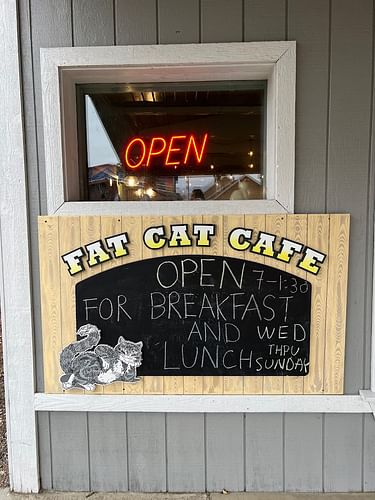 OPEN
FAT CAT CAFE
OPEN 7-1:30
FOR BREAKFAST
AND WED
THRU
LUNCH SUNDAY